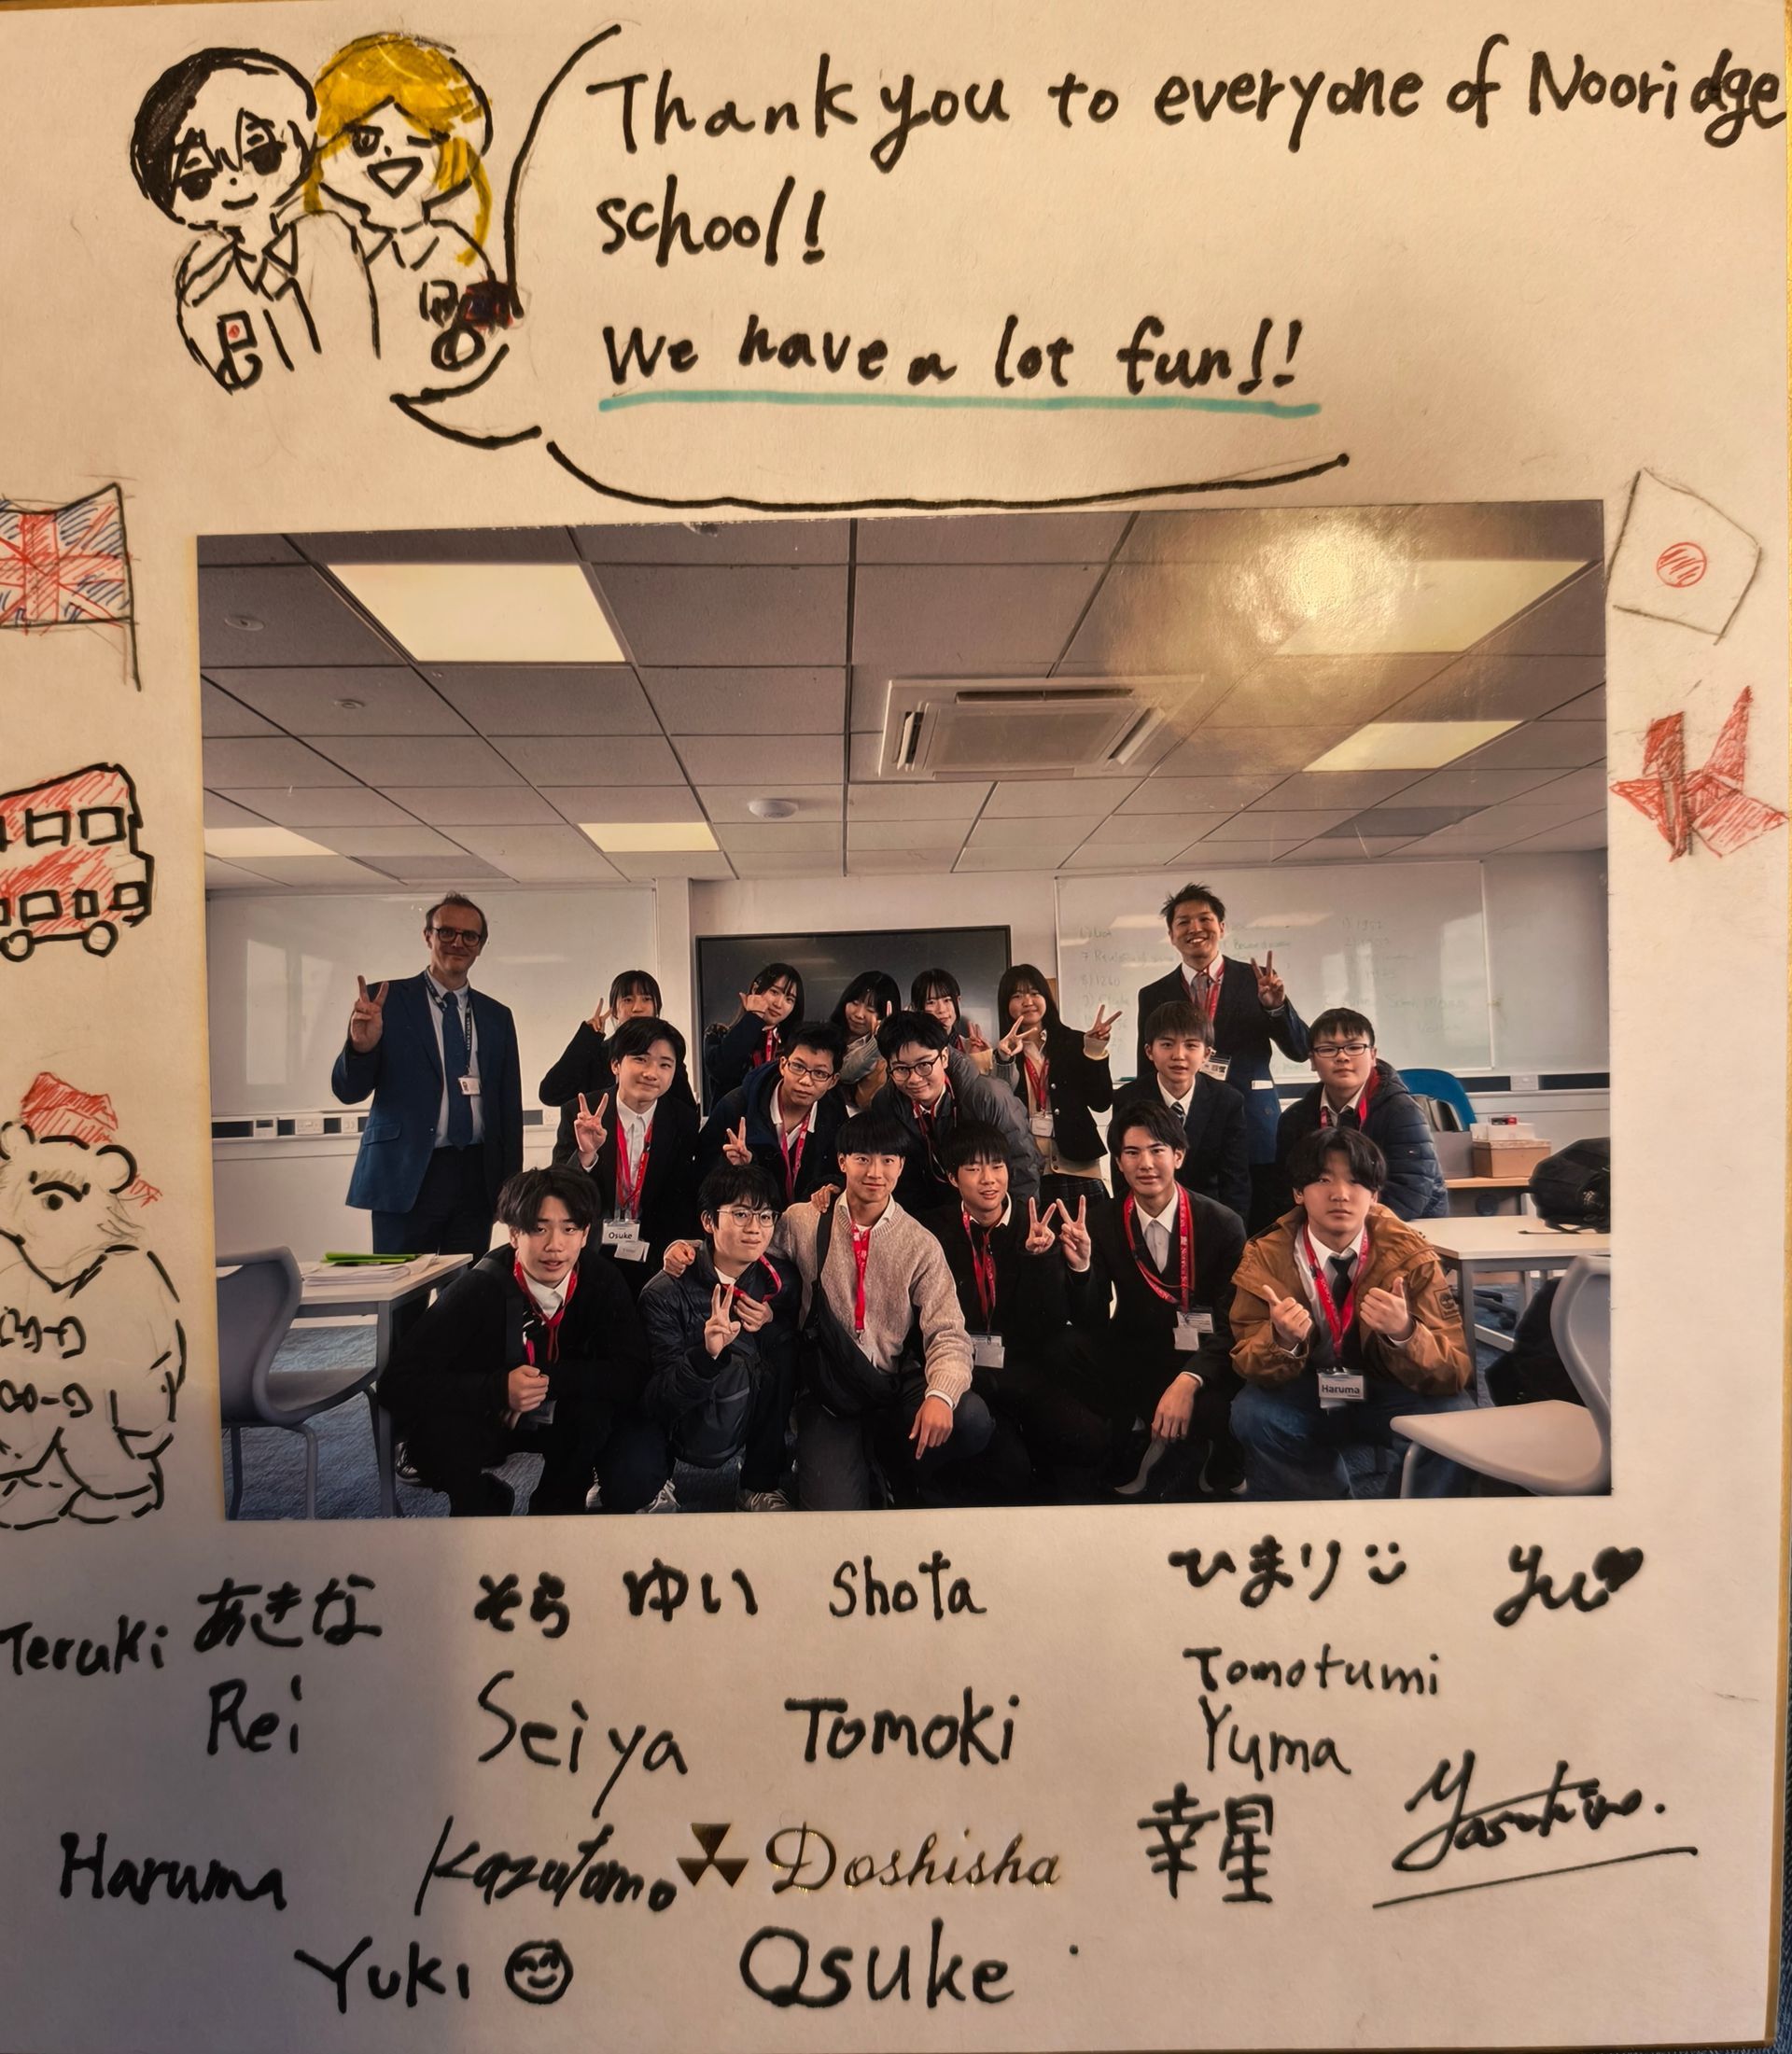 Thank you to everyone of Nooridge
school!
We have a lot fun!!
Osuke
Haruma
あきな そら ゆい Shota ひまり yu
Teruki
Tomofumi
Rei Seiya Tomoki Yuma
Haruma Kazutomo Doshisha 幸星 Yasuhiro.
Yuki Osuke